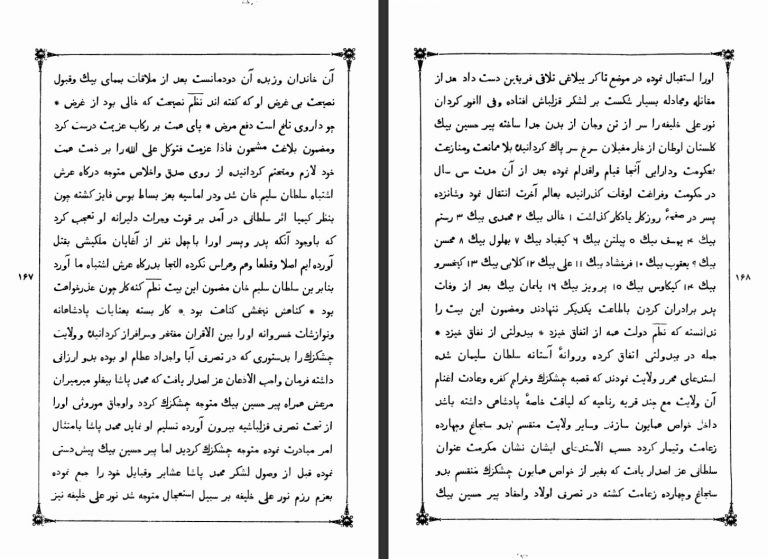 آن خاندان وزبده آن دودمانست بعد از ملاقات بیمای بیك وقبول
نصیحت بی غرض او که گفته اند نظم نصیحت که خالی بود از غرض *
چو داروی تلخ است دفع مرض * پای همت بر رکاب عزیمت درست کرد
ومضمون بلاغت مشحون فاذا عزمت فتوکل علی الله را بر ذمت همت
خود لازم ومتحتم کردانیده از روی صدق واخلاص متوجه درکاه عرش
اشتباه سلطان سلیم خان شد ودر اماسیه بعز بساط بوس فایز کشته چون
بنظر کیمیا اثر سلطانی در آمد بر قوت وجرات دلیرانه او تعجب کرد
که باوجود آنکه پدر وپسر اورا باچهل نفر از آغایان ملکیشی بقتل
آورده ایم اصلا وقطعا وهم وهراس نکرده التجا بدرکاه عرش اشتباه ما آورد
بنابرین سلطان سلیم خان مضمون این بیت نظم کنه کار چون عذرخواهت
بود * کناهش نبخشی کناهت بود * کار بسته بعنایات پادشاهانه
ونوازشات خسروانه اورا بین الاقران مفتخر وسرافراز کردانیده وولایت
چمشکزك را بدستوری که در تصرف آبا واجداد عظام او بوده بدو ارزانی
داشته فرمان واجب الاذعان عز اصدار یافت که محمد پاشا بیقلو میرمیران
مرعش همراه پیر حسین بیك متوجه چمشکزك کردد واوجاق موروثی اورا
از تحت تصرف قزلباشیه بیرون آورده تسلیم او نماید محمد پاشا بامتثال
امر مبادرت نموده متوجه چمشکزك کردید اما پیر حسین بیك پیش دستی
نموده قبل از وصول لشکر محمد پاشا عشایر وقبایل خود را جمع نموده
بعزم رزم نور علی خلیفه بر سبیل استعجال متوجه شد نور علی خلیفه نیز
١٦٧
اورا استقبال نموده در موضع تاکر ییلاغی تلاقی فریقین دست داد بعد از
مقاتله ومجادله بسیار شکست بر لشکر قزلباش افتاده وفی الفور کردان
نور علی خلیفه را سر از تن وجان از بدن جدا ساخته پیر حسین بیك
کلستان اوطان از خار مغیلان سرخ سر پاك کردانیده بلا ممانعت ومنازعت
بحکومت ودارایی آنجا قیام واقدام نموده بعد از آن مدت سی سال
در حکومت وفراغت اوقات کذرانیده بعالم آخرت انتقال نمود وشانزده
پسر در صفحهٔ روزکار یادکار کذاشت ١ خالد بیك ٢ محمدی بیك ٣ رستم
بیك ۴ یوسف بیك ٥ پیلتن بیك ٦ کیقباد بیك ٧ بهلول بیك ٨ محسن
بیك ٩ یعقوب بیك ١٠ فرخشاد بیك ١١ علی بیك ١٢ کلابی بیك ١٣ کیخسرو
بیك ١۴ کیکاوس بیك ١٥ پرویز بیك ١٦ یلمان بیك بعد از وفات
پدر برادران کردن باطاعت یکدیکر ننهادند ومضمون این بیت را
ندانسته که نظم دولت همه از اتفاق خیزد * بیدولتی از نفاق خیزد *
جمله در بیدولتی اتفاق کرده وروانهٔ آستانه سلطان سلیمان شده
استدعای محرر ولایت نمودند که قصبه چمشکزك وخراج کفره وعادت اغنام
آن ولایت مع چند قریه رناحیه که لیاقت خاصهٔ پادشاهی داشته باشد
داخل خواص همایون سازند وسایر ولایت منقسم بدو سنجاغ وچهارده
زعامت وتیمار کردد حسب الاستدعای ایشان نشان مکرمت عنوان
سلطانی عز اصدار یافت که بغیر از خواص همایون چمشکزك منقسم بدو
سنجاغ وچهارده زعامت کشته در تصرف اولاد واحفاد پیر حسین بیك
١٦٨